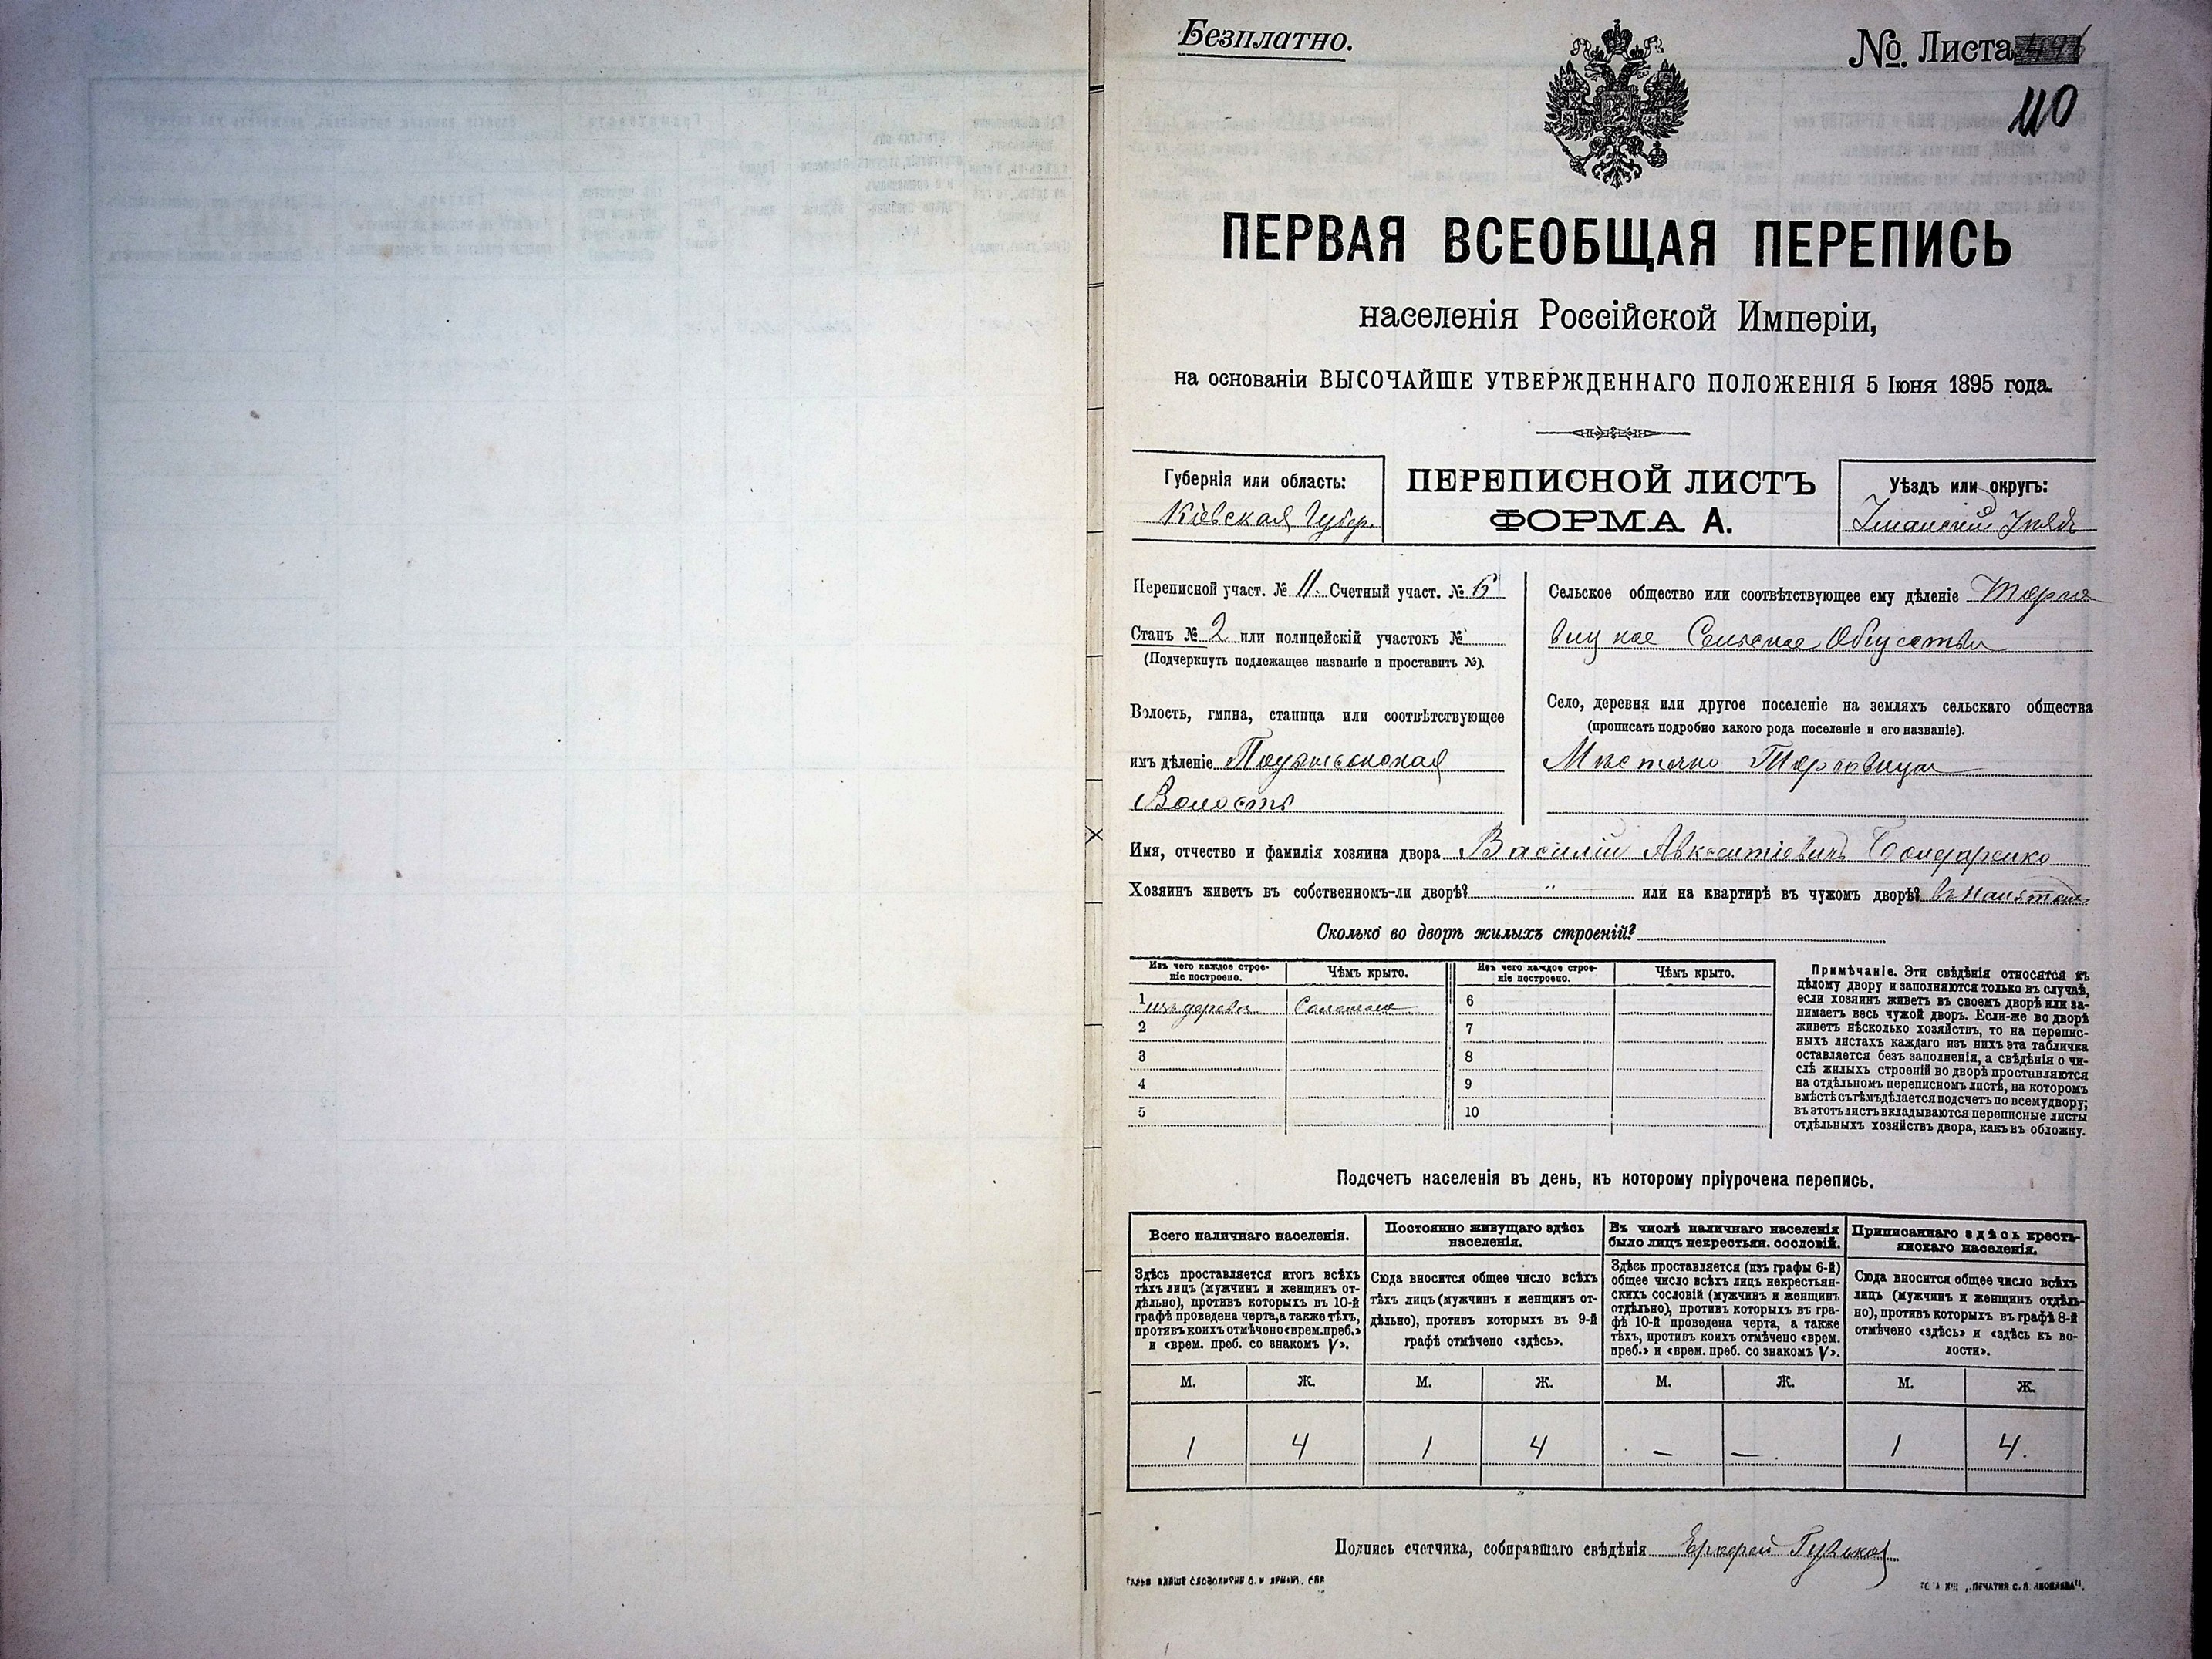 Безплатно.
№. Листа
110
ПЕРВАЯ ВСЕОБЩАЯ ПЕРЕПИСЬ
населенія Россійской Имперіи,
на основаніи ВЫСОЧАЙШЕ УТВЕРЖДЕННАГО ПОЛОЖЕНІЯ 5 Іюня 1895 года.
Губернія или область:
Кіевская Губер.
ПЕРЕПИСНОЙ ЛИСТЪ
ФОРМА А.
Уѣздъ или округъ:
Уманскій Уѣздъ
Переписной участ. № 11. Счетный участ. №
Станъ № 2 или полицейскій участокъ №
(Подчеркнуть подлежащее названіе и проставить №).
Волость, гмина, станица или соотвѣтствующее
имъ дѣленіе
Волость
Сельское общество или соотвѣтствующее ему дѣленіе Торго
вицкое Сельское Общество
Село, деревня или другое поселеніе на земляхъ сельскаго общества
(прописать подробно какого рода поселеніе и его названіе).
Мѣстечко Торговица
Имя, отчество и фамилія хозяина двора Василій Авксентіевичъ Бондаренко
Хозяинъ живетъ въ собственномъ-ли дворѣ? " или на квартирѣ въ чужомъ дворѣ?
Сколько во дворѣ жилыхъ строеній?
Изъ чего каждое строе-
ніе построено.
Чѣмъ крыто.
Изъ чего каждое строе-
ніе построено.
Чѣмъ крыто.
1 изъ дерева Соломою
2
3
4
5
6
7
8
9
10
Примѣчаніе. Эти свѣдѣнія относятся къ
цѣлому двору и заполняются только въ случаѣ,
если хозяинъ живетъ въ своемъ дворѣ или за-
нимаетъ весь чужой дворъ. Если-же во дворѣ
живетъ нѣсколько хозяйствъ, то на перепис-
ныхъ листахъ каждаго изъ нихъ эта табличка
оставляется безъ заполненія, а свѣдѣнія о чи-
слѣ жилыхъ строеній во дворѣ проставляются
на отдѣльномъ переписномъ листѣ, на которомъ
вмѣстѣ съ тѣмъ дѣлается подсчетъ по всему двору;
въ этотъ листъ вкладываются переписные листы
отдѣльныхъ хозяйствъ двора, какъ въ обложку.
Подсчетъ населенія въ день, къ которому пріурочена перепись.
Всего наличнаго населенія.
Здѣсь проставляется итогъ всѣхъ
тѣхъ лицъ (мужчинъ и женщинъ от-
дѣльно), противъ которыхъ въ 10-й
графѣ проведена черта, а также тѣхъ,
противъ коихъ отмѣчено «врем. преб.»
и «врем. преб. со знакомъ V».
Постоянно живущаго здѣсь
населенія.
Сюда вносится общее число всѣхъ
тѣхъ лицъ (мужчинъ и женщинъ от-
дѣльно), противъ которыхъ въ 9-й
графѣ отмѣчено «здѣсь».
Въ числѣ наличнаго населенія
было лицъ некрестьян. сословій.
Здѣсь проставляется (изъ графы 6-й)
общее число всѣхъ лицъ некрестьян-
скихъ сословій (мужчинъ и женщинъ
отдѣльно), противъ которыхъ въ гра-
фѣ 10-й проведена черта, а также
тѣхъ, противъ коихъ отмѣчено «врем.
преб.» и «врем. преб. со знакомъ V».
Приписаннаго здѣсь кресть-
янскаго населенія.
Сюда вносится общее число всѣхъ
лицъ (мужчинъ и женщинъ отдѣль-
но), противъ которыхъ въ графѣ 8-й
отмѣчено «здѣсь» и «здѣсь къ во-
лости».
М. Ж. М. Ж. М. Ж. М. Ж.
1 4 1 4 — — 1 4.
Подпись счетчика, собиравшаго свѣдѣнія Ерофей